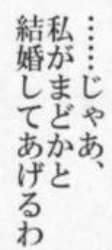 ……じゃあ、
私がまどかと
結婚してあげるわ